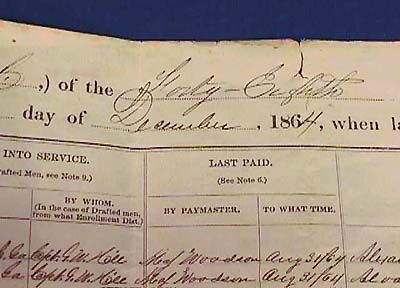 ,) of the Forty-Eighth
day of December, 1864, when la
INTO SERVICE.
rafted Men, see Note 9.)
BY WHOM.
(In the case of Drafted men, from what Enrollment Dist.)
LAST PAID.
(See Note 6.)
BY PAYMASTER.
TO WHAT TIME.
Capt. G. W. Hoee Maj Woodson Aug 31/64
Ca Capt. G. W. Hoee Maj Woodson Aug 31/64